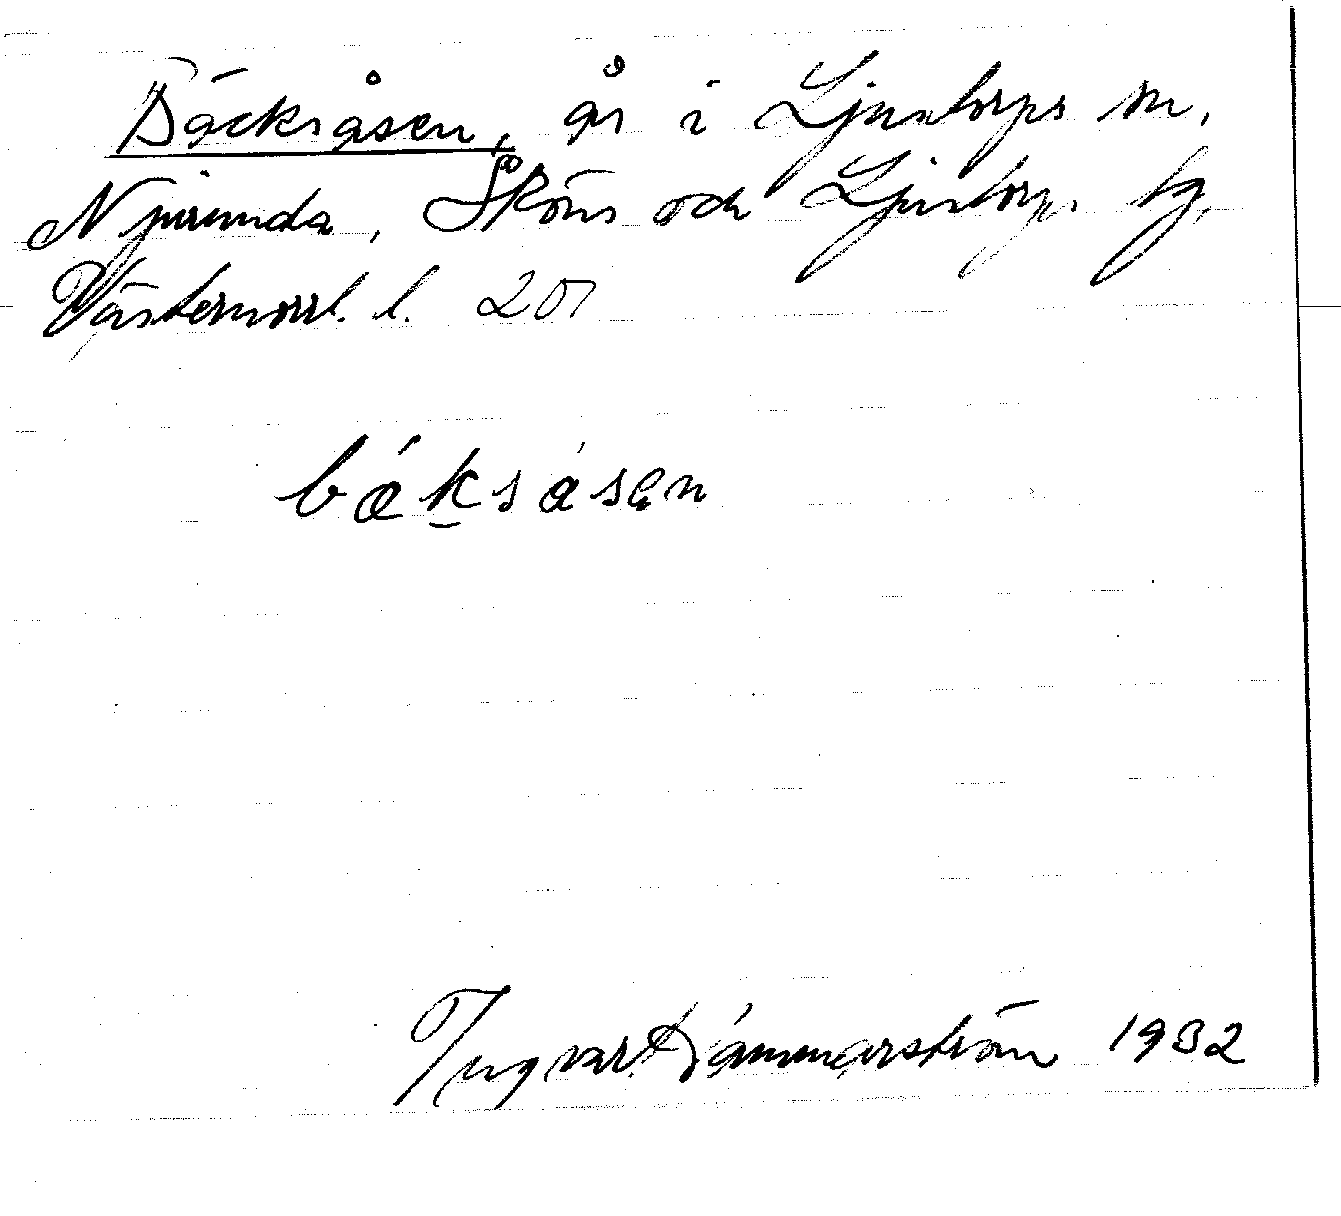 Bäcksåsen, ås i Ljustorps sn,
Njurunda, Sköns och Ljustorps tg,
Västernorrl. l. 20
bæksåsen
Ingvar Hämmarström 1932